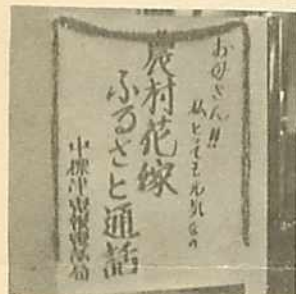 お母さん!!
私とっても元気なの
農村花嫁
ふるさと通話
中標津電報電話局